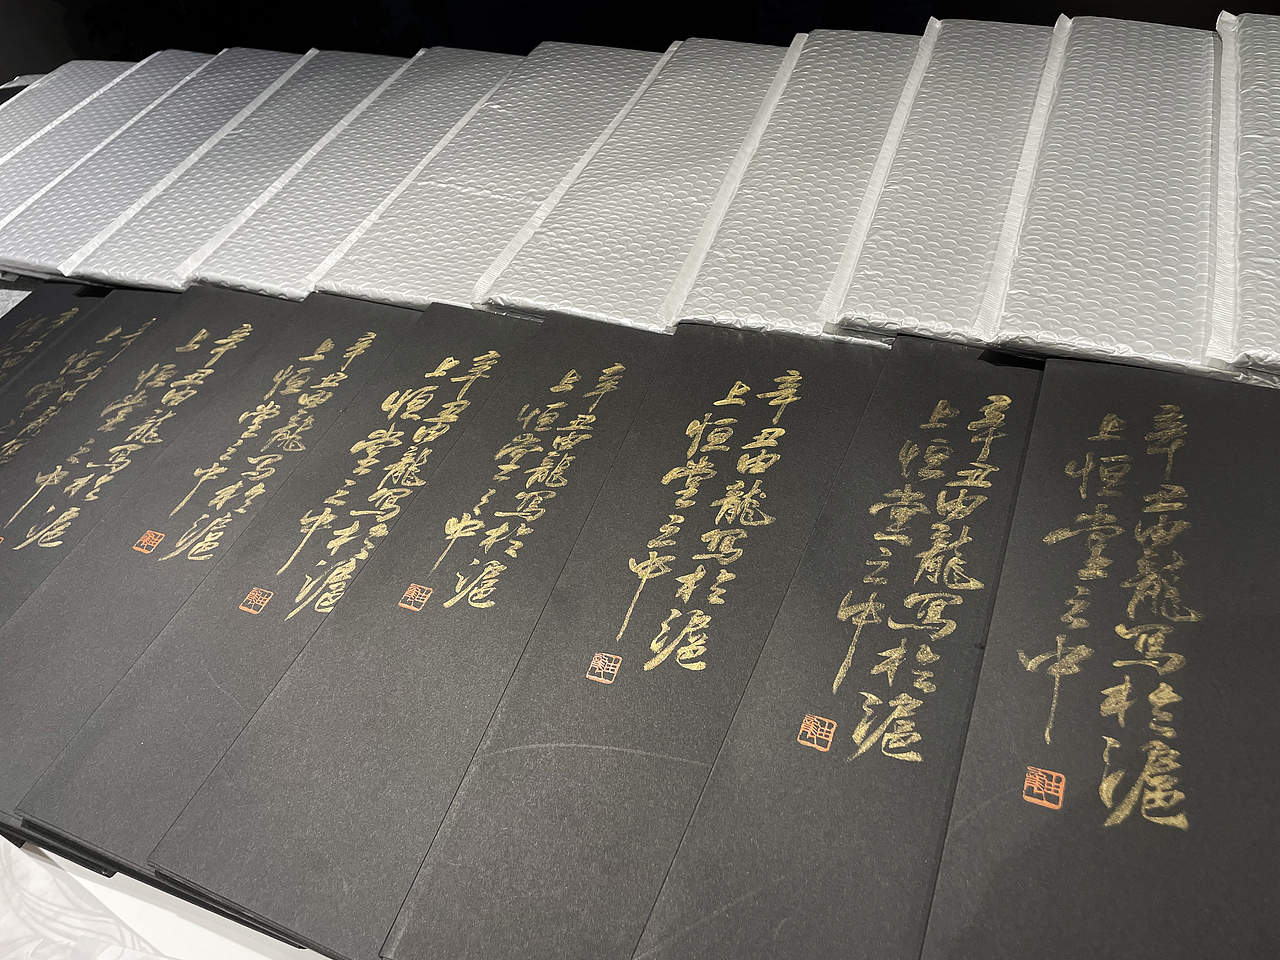 辛丑由龍寫於滬
上恒堂之中
由龍
辛丑由龍寫於滬
上恒堂之中
由龍
辛丑由龍寫於滬
上恒堂之中
由龍
辛丑由龍寫於滬
上恒堂之中
由龍
辛丑由龍寫於滬
上恒堂之中
由龍
辛丑由龍寫於滬
上恒堂之中
由龍
辛丑由龍寫於滬
上恒堂之中